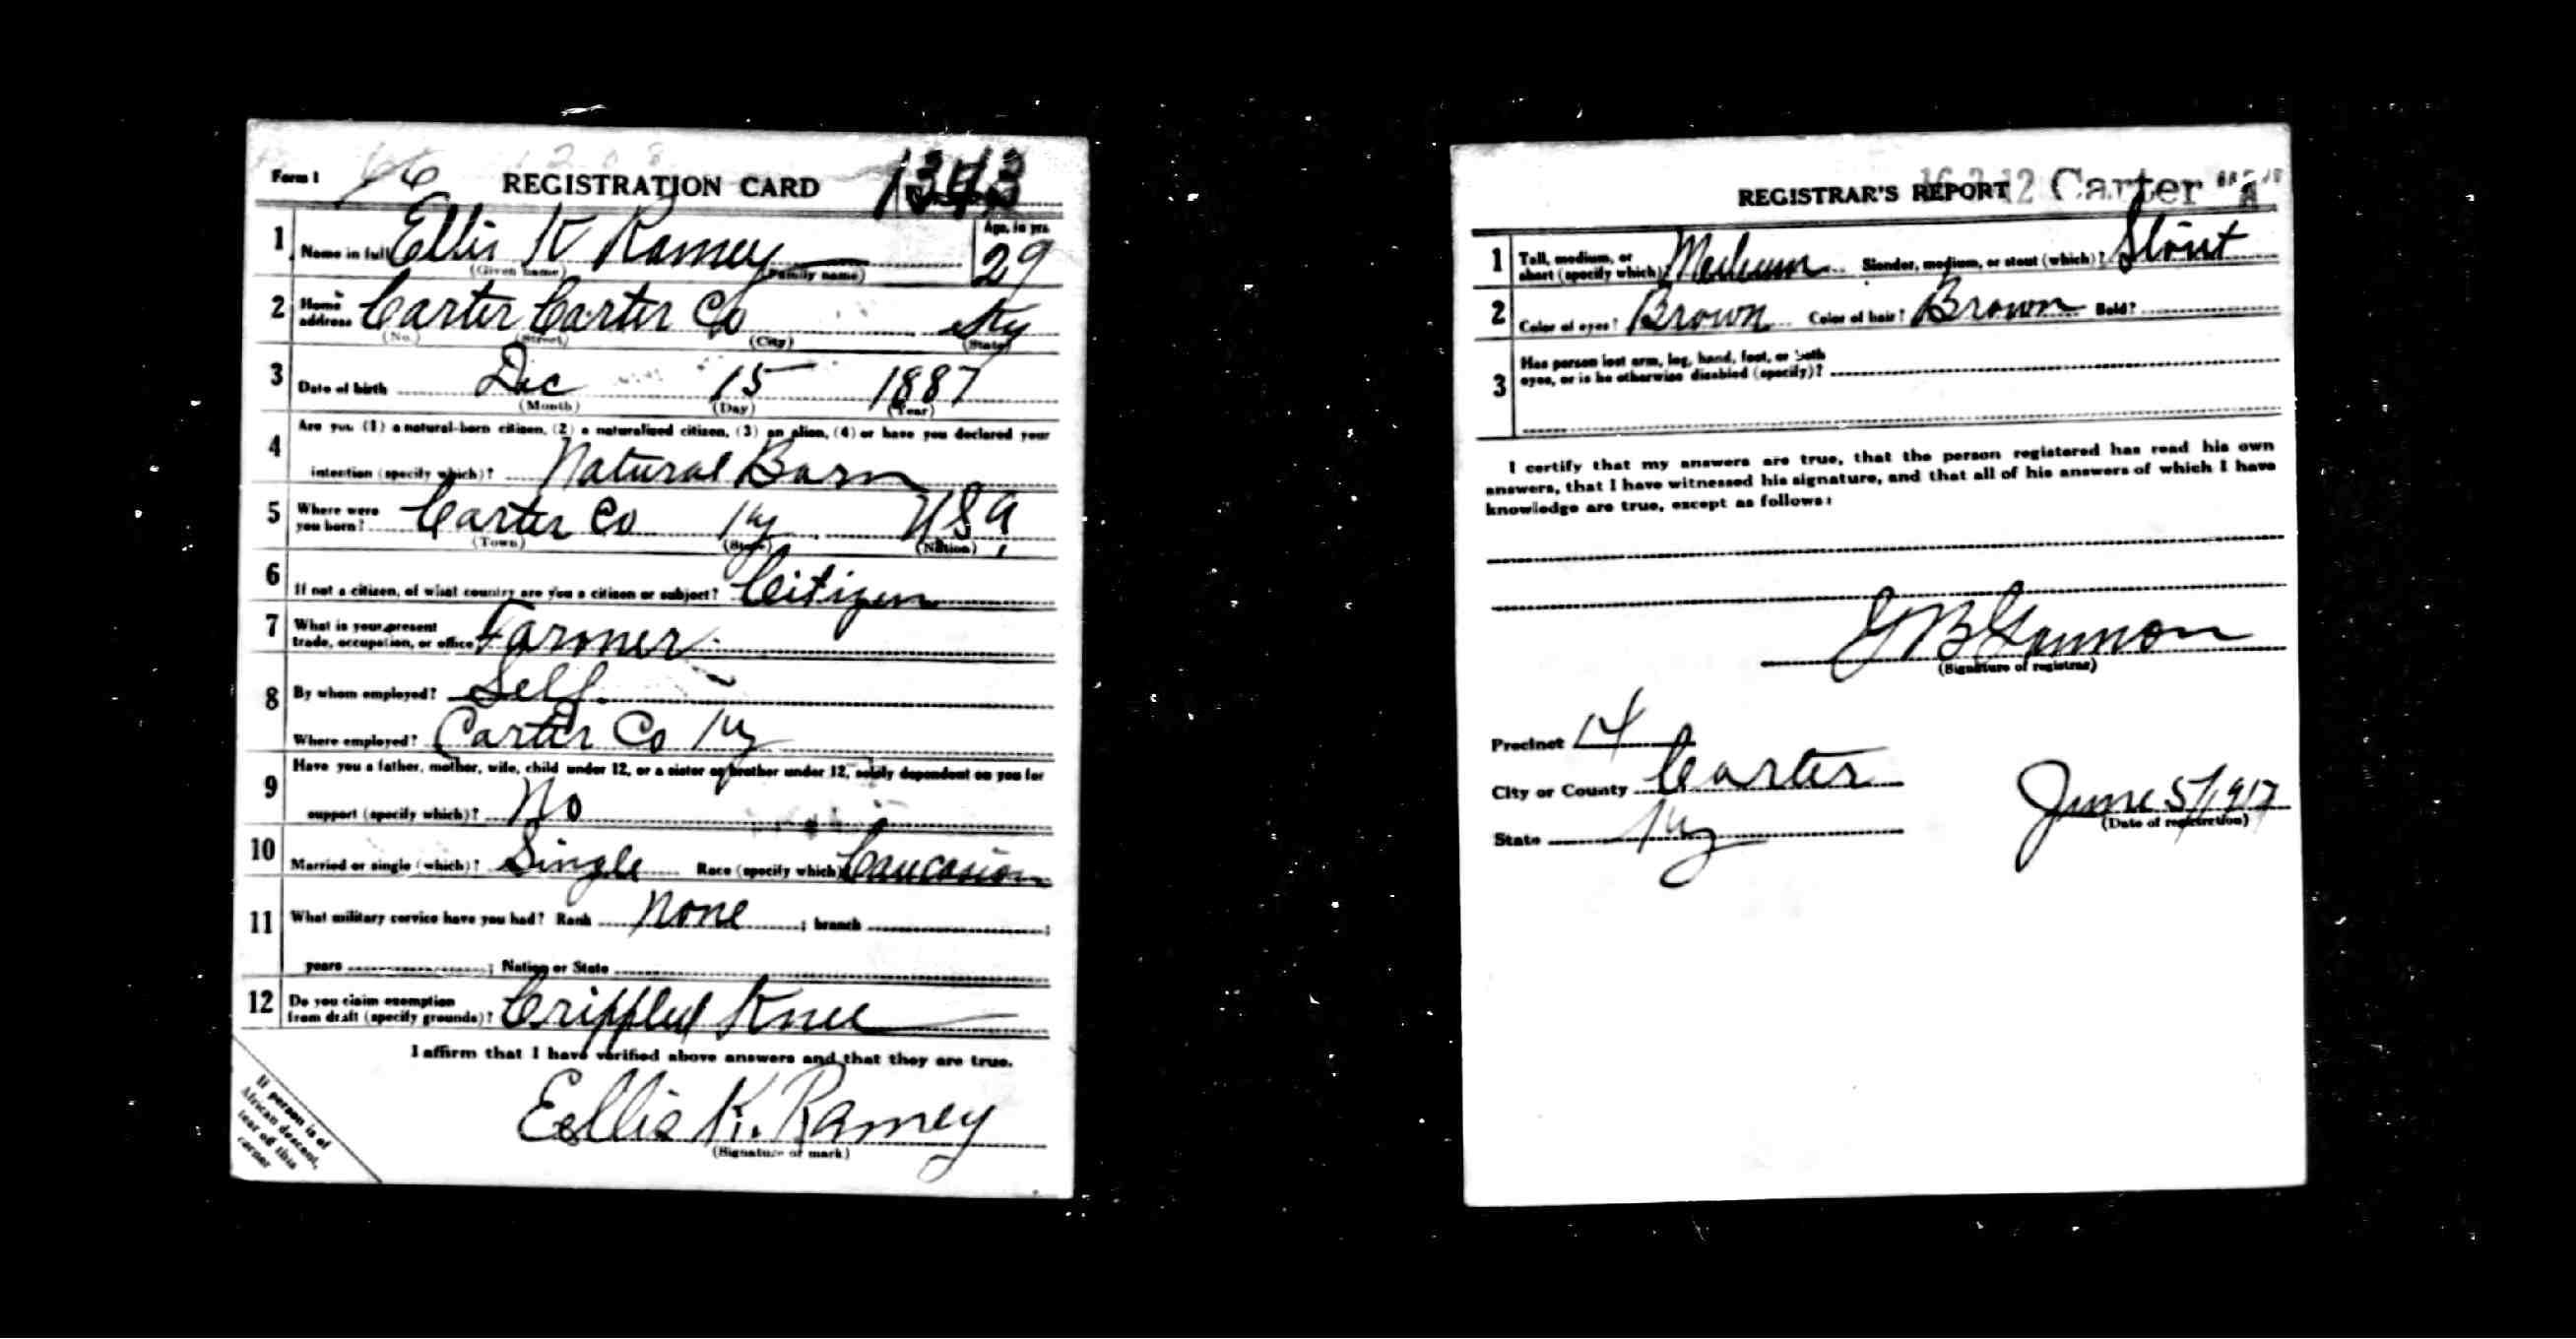 Form 1 66 REGISTRATION CARD 1343
1 Name in full Ellis K Ramey Age, in yrs. 29
(Given name) (Family name)
2 Home address Carter Carter Co Ky
(No.) (Street) (City) (State)
3 Date of birth Dec 15 1887
(Month) (Day) (Year)
4 Are you (1) a natural-born citizen, (2) a naturalized citizen, (3) an alien, (4) or have you declared your
intention (specify which)? Natural Born
5 Where were you born? Carter Co Ky USA
(Town) (State) (Nation)
6 If not a citizen, of what country are you a citizen or subject? Citizen
7 What is your present trade, occupation, or office Farmer
8 By whom employed? Self
Where employed? Carter Co Ky
9 Have you a father, mother, wife, child under 12, or a sister or brother under 12, solely dependent on you for
support (specify which)? No
10 Married or single (which)? Single Race (specify which) Caucasion
11 What military service have you had? Rank None ; branch ;
years ; Nation or State
12 Do you claim exemption
from draft (specify grounds)? Crippled Knee
I affirm that I have verified above answers and that they are true.
Ellis K. Ramey
(Signature or mark)
If person is of
African descent,
tear off this
corner
REGISTRAR'S REPORT 12 Carter A
1 Tall, medium, or
short (specify which) Medium Slender, medium, or stout (which)? Stout
2 Color of eyes? Brown Color of hair? Brown Bald?
3 Has person lost arm, leg, hand, foot, or both
eyes, or is he otherwise disabled (specify)?
I certify that my answers are true, that the person registered has read his own
answers, that I have witnessed his signature, and that all of his answers of which I have
knowledge are true, except as follows:
J B Gannon
(Signature of registrar)
Precinct 14
City or County Carter
State Ky
June 5/1917
(Date of registration)